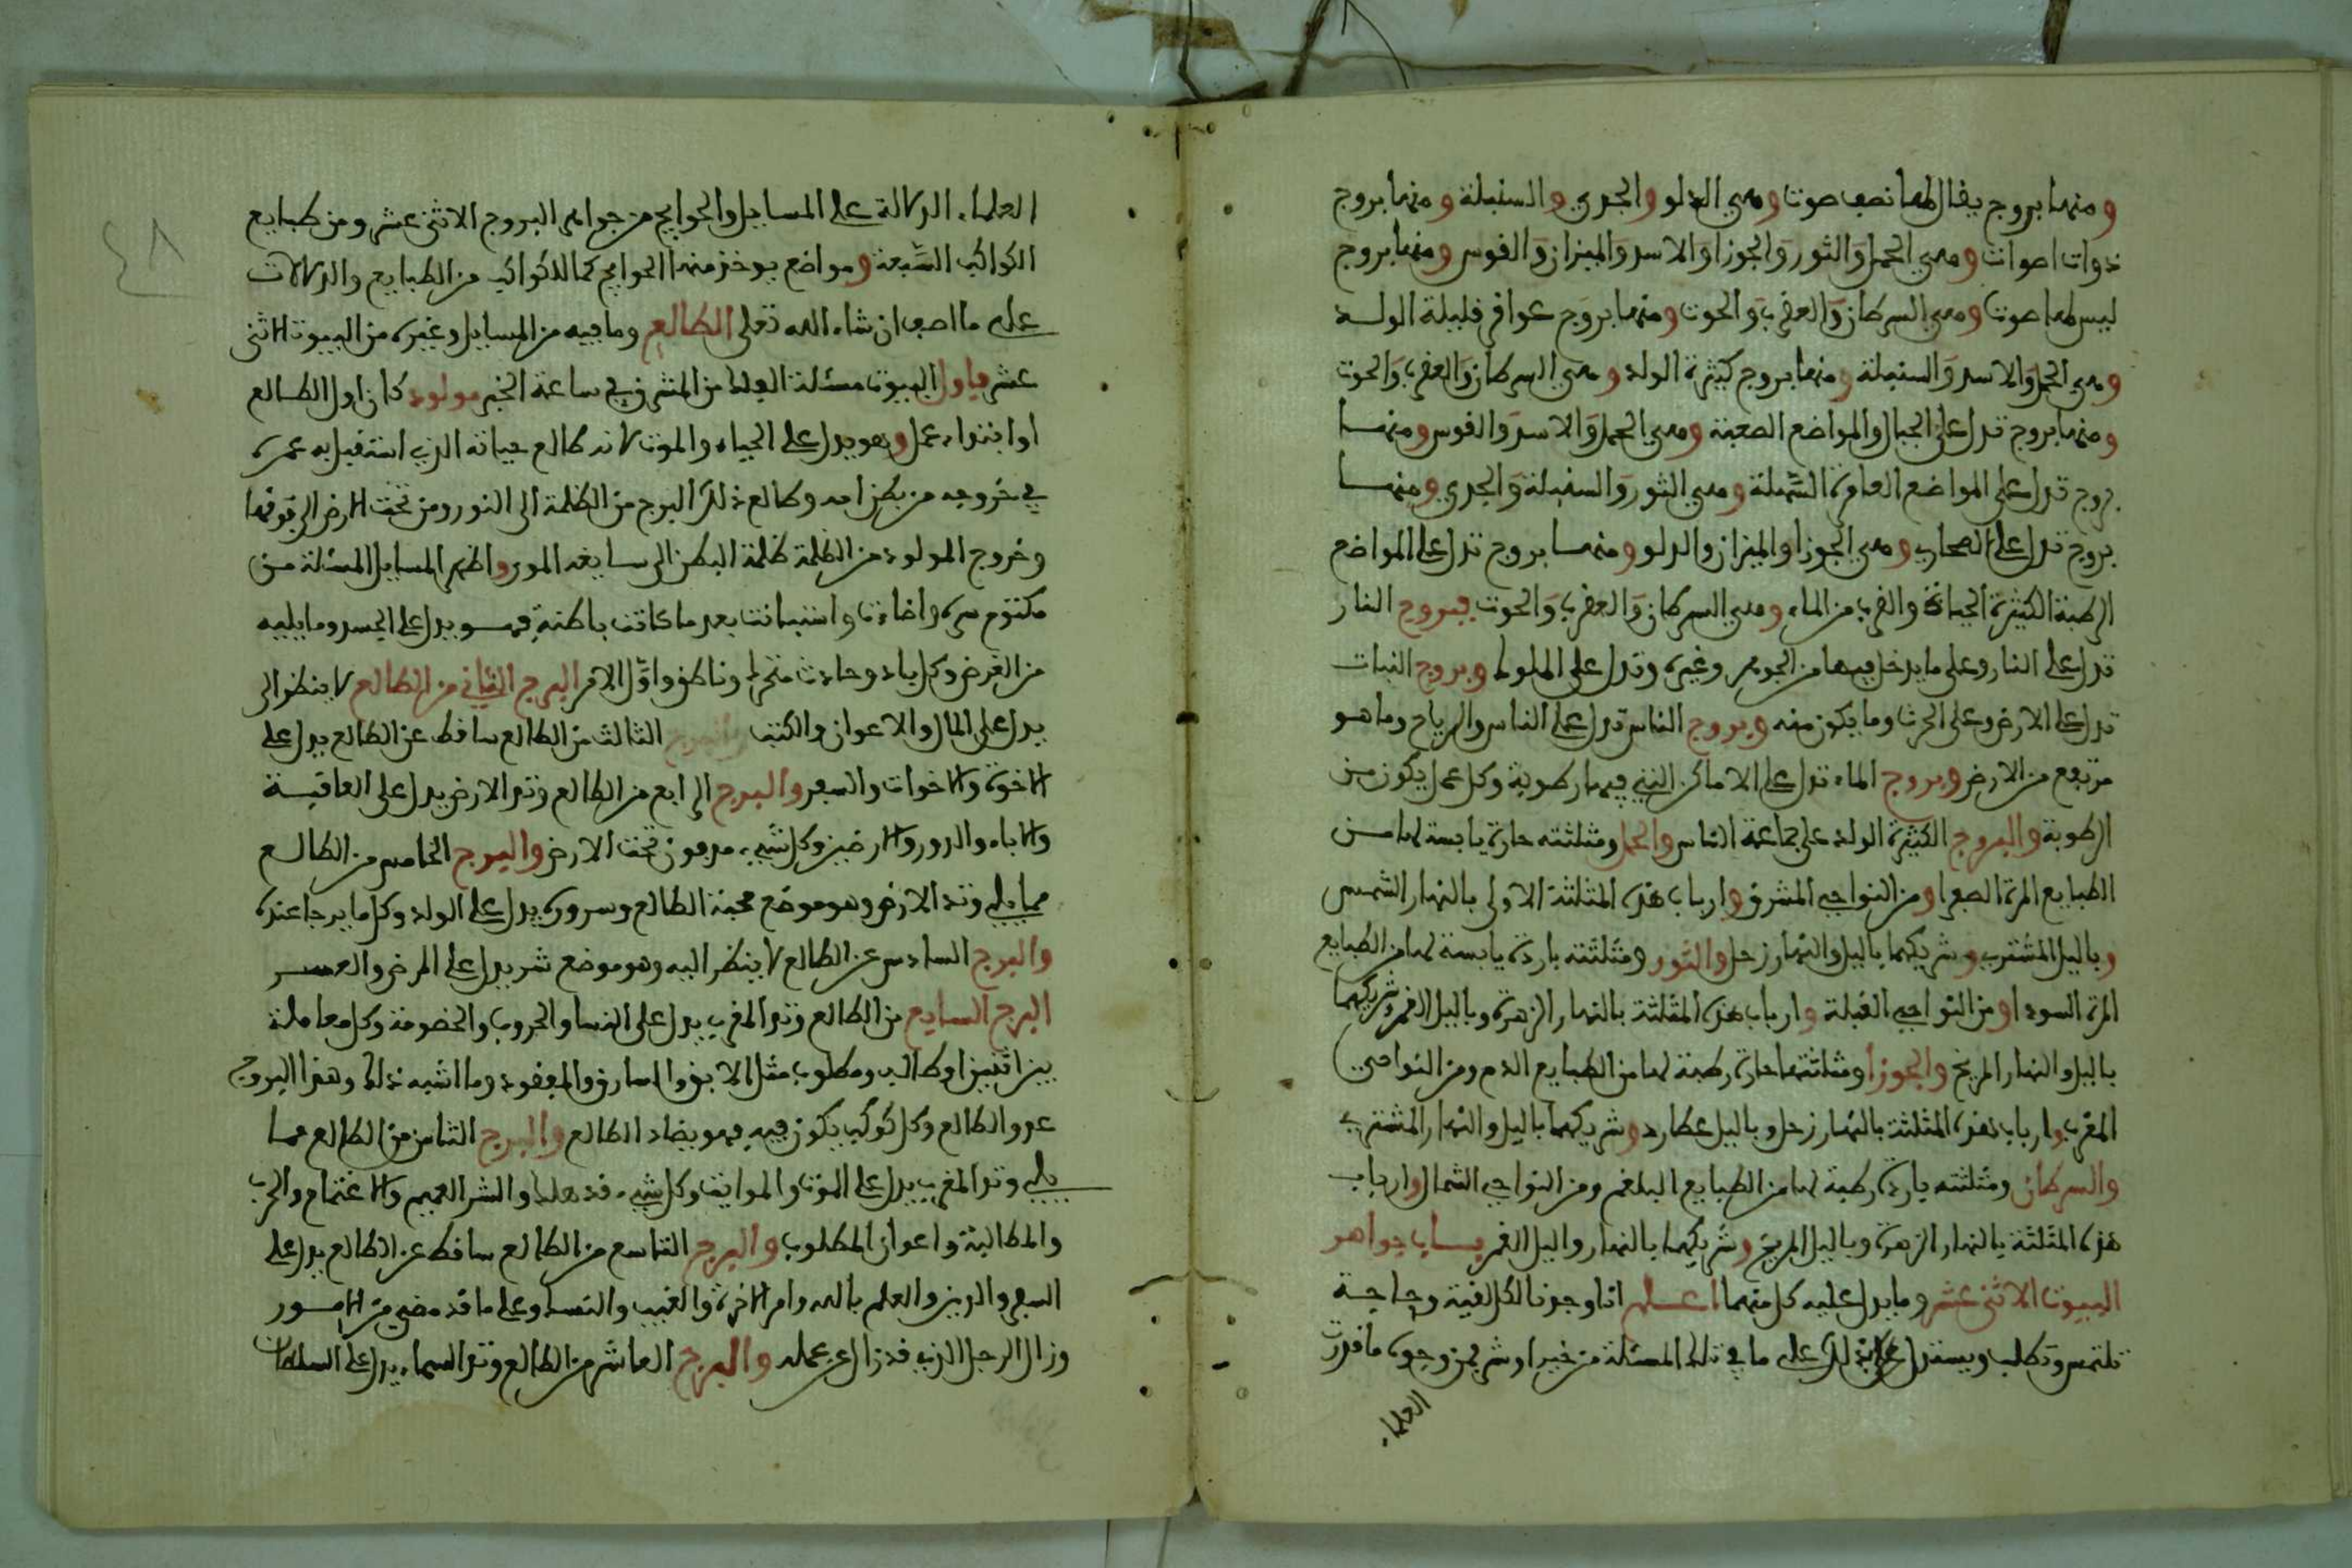 ومنها بروج يقال لها نصف صوت وهي الدلو والجدي والسنبلة ومنها بروج
ذوات اصوات وهي الحمل والثور والجوزا والاسد والميزان والقوس ومنها بروج
ليس لها صوت وهي السرطان والعقرب والحوت ومنها بروج عواقر قليلة الولد
وهي الحمل والاسد والسنبلة ومنها بروج كثيرة الولد وهي السرطان والعقرب والحوت
ومنها بروج تدل على الجبال والمواضع الصعبة وهي الحمل والاسد والقوس ومنها
بروج تدل على المواضع العامرة السهلة وهي الثور والسنبلة والجدي ومنها
بروج تدل على الصحاري وهي الجوزا والميزان والدلو ومنها بروج تدل على المواضع
الرطبة الكثيرة الحياة والقرب من الماء وهي السرطان والعقرب والحوت فبروج النار
تدل على النار وعلى ما يدخل فيها من الجوهر وغيره وتدل على الملوك وبروج النبات
تدل على الارض وعلى الحرث وما يكون منه وبروج الناس تدل على الناس والرياح وما هو
مرتفع من الارض وبروج الماء تدل على الاماكن التي فيها رطوبة وكل عمل يكون من
الرطوبة والبروج الكثيرة الولد على جماعة الناس والحمل ومثلثته حارة يابسة لها من
الطبايع المرة الصفرا ومن النواحي المشرق وارباب هذه المثلثة الاولى بالنهار الشمس
وباليل المشتري وشريكهما باليل والنهار زحل والثور ومثلثته باردة يابسة لها من الطبايع
المرة السودا ومن النواحي القبلة وارباب هذه المثلثة بالنهار الزهرة وباليل القمر وشريكهما
باليل والنهار المريخ والجوزا ومثلثتها حارة رطبة لها من الطبايع الدم ومن النواحي
المغرب وارباب هذه المثلثة بالنهار زحل وباليل عطارد وشريكهما باليل والنهار المشتري
والسرطان ومثلثته باردة رطبة لها من الطبايع البلغم ومن النواحي الشمال وارباب
هذه المثلثة بالنهار الزهرة وباليل المريخ وشريكهما بالنهار واليل القمر بساب جواهر
البيوت الاثنى عشر وما يدل عليه كل منهما اعلم انا وجدنا لكل لفية وحاجة
تلتمس وتطلب ويستدل بذلك على ما في تلك المسئلة من خير او شر فمن وجوه ما قدرت
العلماء
٤٨
العلماء الدلالة على المسايل والحوايج من جواهر البروج الاثنى عشر ومن طبايع
الكواكب السبعة ومواضع يوخذ منها الحوايج كما للكواكب من الطبايع والدلالات
على ما اصف ان شاء الله تعلى الطالع وما فيه من المسايل وغيره من البيوت الاثنى
عشر فاول البيوت مسئلة الفلك من المشرق في ساعة الخبر مولود كان اول الطالع
او ابتداء عمل وهو يدل على الحياه والموت لانه طالع حياته الذي استقبل به عمره
في خروجه من بطن امه وطالع ذلك البرج من الظلمة الى النور ومن تحت الارض الى فوقها
وخروج المولود من الظلمة ظلمة البطن الى واظهر المسايل المسئلة من
مكتوم سره واضاءت واستبانت بعد ما كانت باطنة فهو يدل على الجسد وما يليه
من الغرض وكل باد وحادث متحرك وناطق واول الامر البرج الثاني من الطالع لا ينظر الى
يدل على المال والاعوان والكتب والبرج الثالث من الطالع ساقط عن الطالع يدل على
الاخوة والاخوات والسفر والبرج الرابع من الطالع وتد الارض يدل على العاقبة
والاباء والدور والارضين وكل شيء مدفون تحت الارض والبرج الخامس من الطالع
مما يلي وتد الارض وهو موضع محبة الطالع وسروره يدل على الولد وكل ما يرجا عنده
والبرج السادس عن الطالع لا ينظر اليه وهو موضع شر يدل على المرض والعسر
البرج السابع من الطالع وتد المغرب يدل على النسا والحروب والخصومة وكل معاملة
بين اثنين او طالب ومطلوب مثل الابق والسارق والمفقود وما اشبه ذلك وهذا البروج
عدو الطالع وكل كوكب يكون فيه فهو يضاد الطالع والبرج الثامن من الطالع مما
يلي وتد المغرب يدل على الموت والمواريث وكل شيء قد هلك والشر العميم والاغتمام والحرب
والمطالبة واعوان المطلوب والبرج التاسع من الطالع ساقط عن الطالع يدل على
السفر والدين والعلم بالله وامر الاخرة والغيب والنسك وعلى ما قد مضى من الامور
وزال الرجل الذي قد زال عن عمله والبرج العاشر من الطالع وتد السماء يدل على السلطان